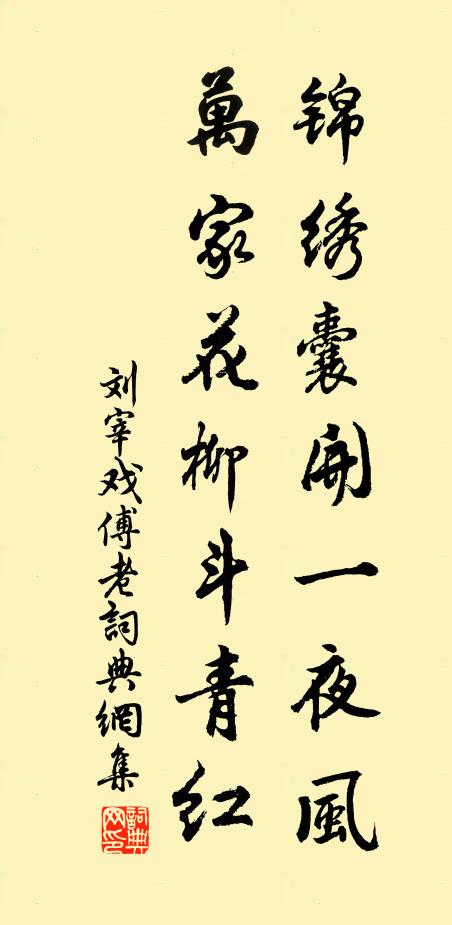 锦绣囊開一夜風
萬家花柳斗青红
刘宰戏傅老詞典網集
詞典
网印